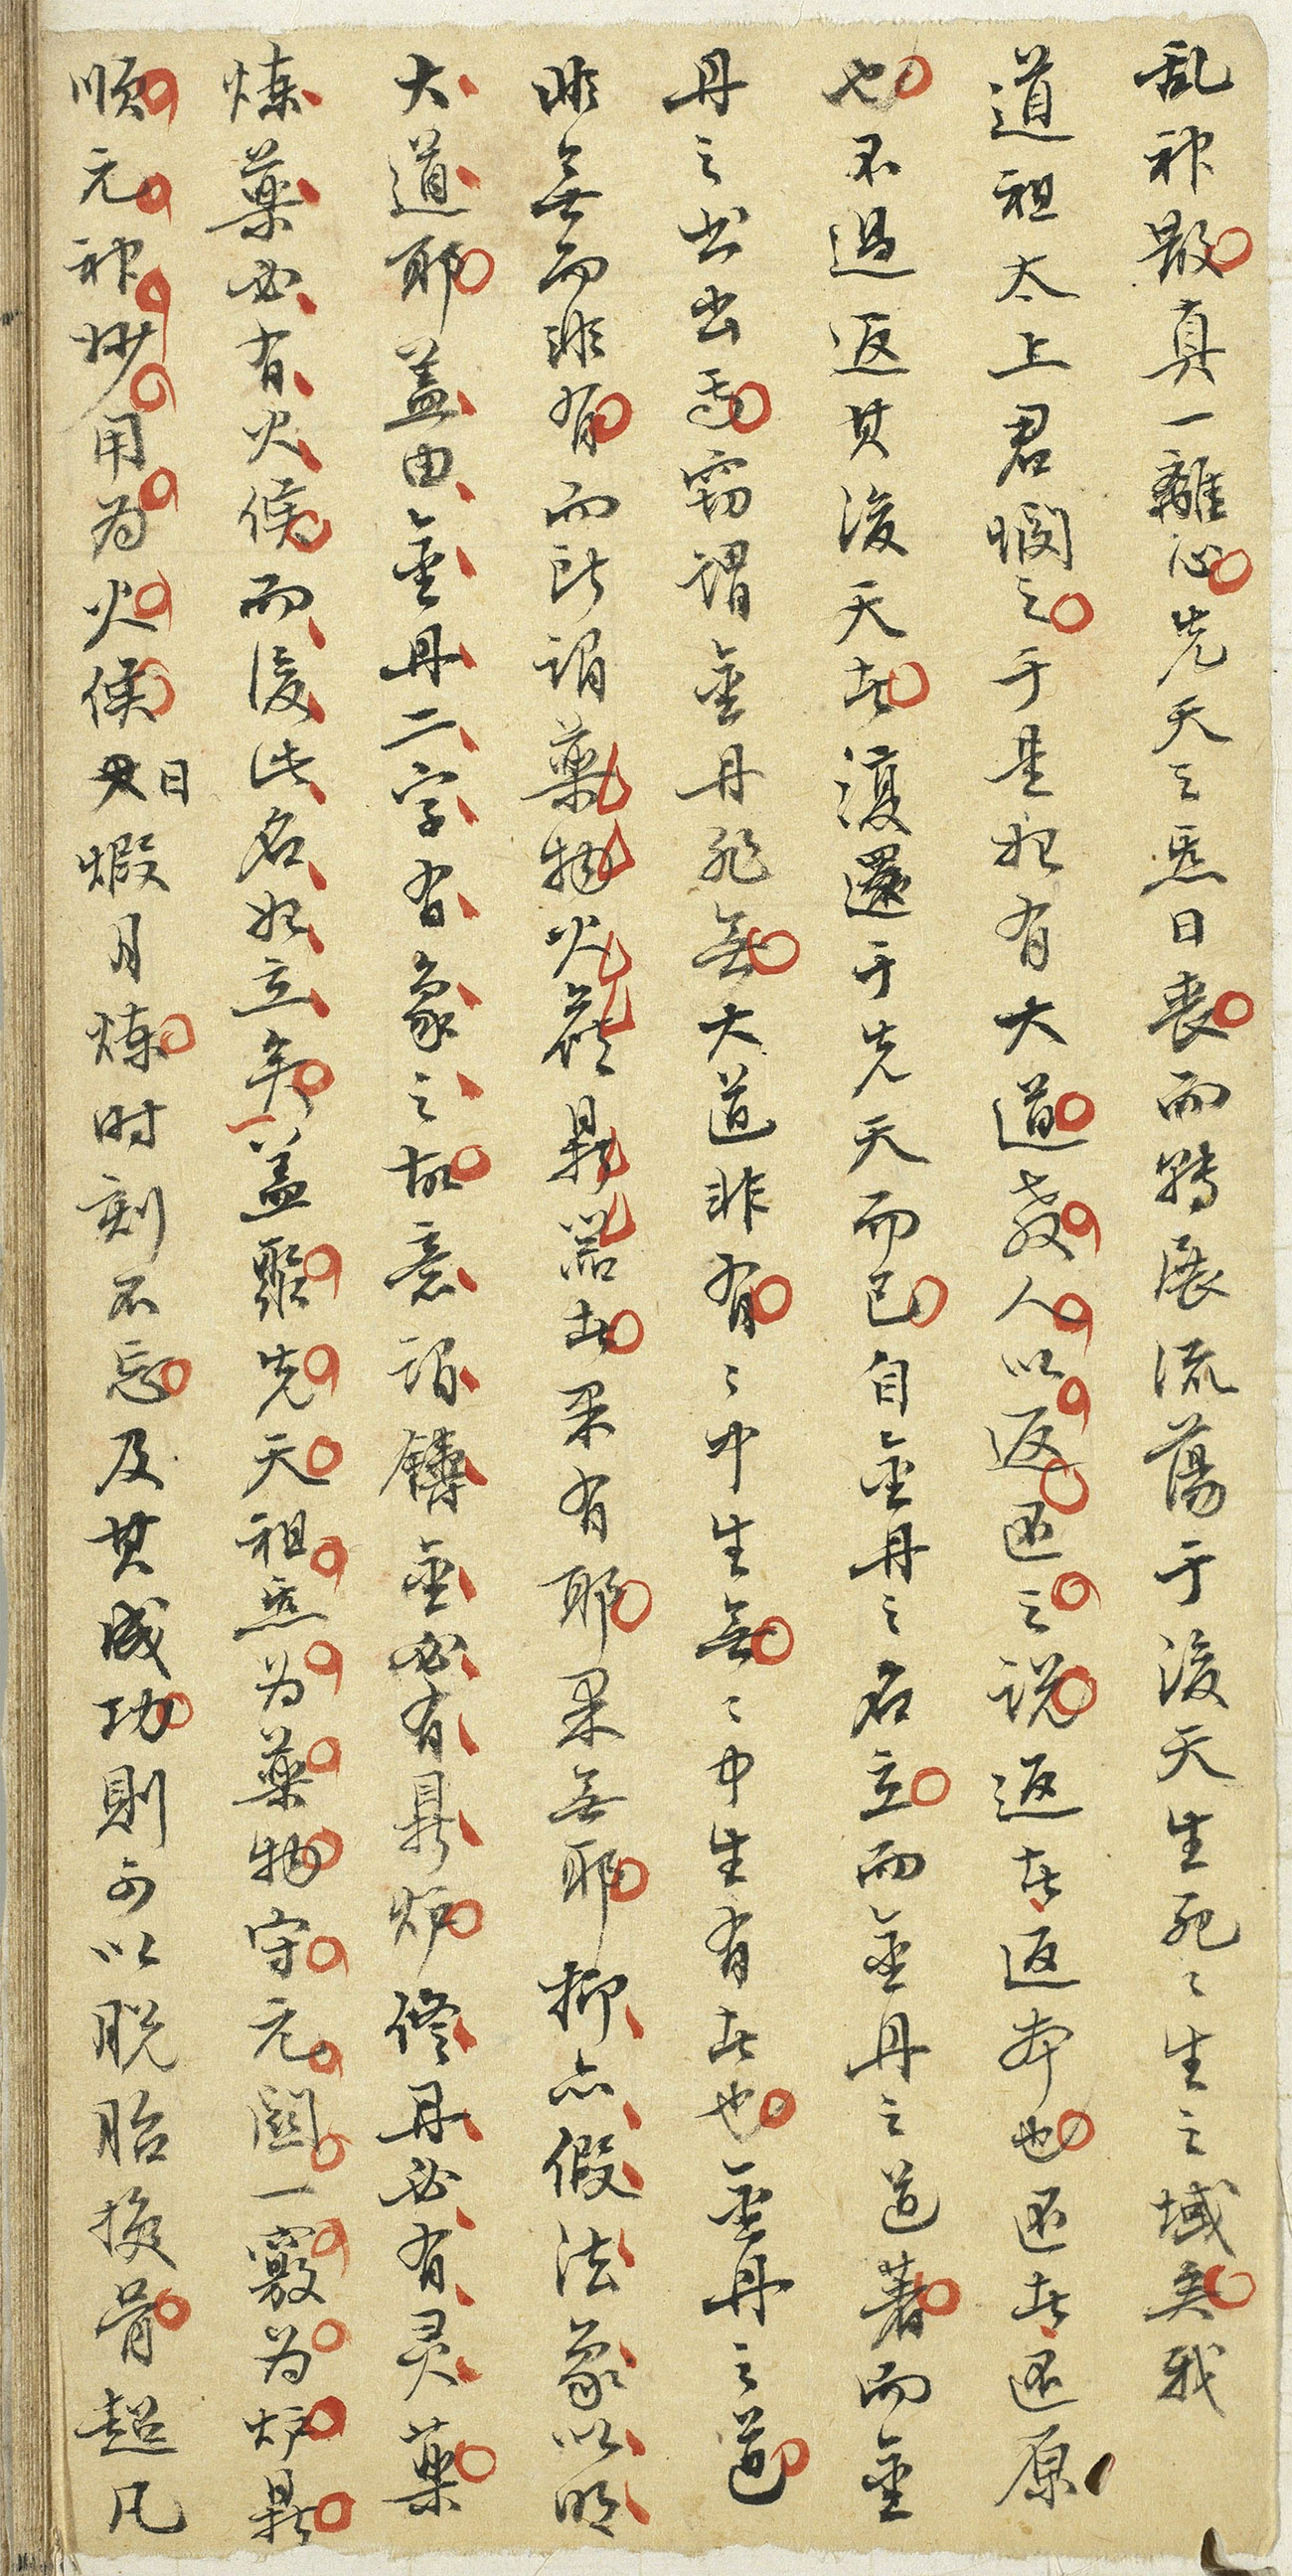 乱神散真一離心先天之炁日丧而轉展流蕩于後天生死〻生之域矣我
道祖太上君憫之于是始有大道教人以返还之说返者返本也还者还原
也不過返其後天者復還于先天而已自金丹之名立而金丹之道著而金
丹之书出焉窃謂金丹非無大道非有〻中生無〻中生有者也金丹之道
非無而非有而所謂藥物火候鼎器者果有耶果无耶抑亦假法象以明
大道耶盖由金丹二字有象之故意谓鑄金必有鼎炉修丹必有灵藥
煉藥必有火候而後此名始立矣盖聚先天祖炁为藥物守元關一竅为炉鼎
順元神妙用为火候日煅月煉时刻不忘及其成功則可以脱胎换骨超凡